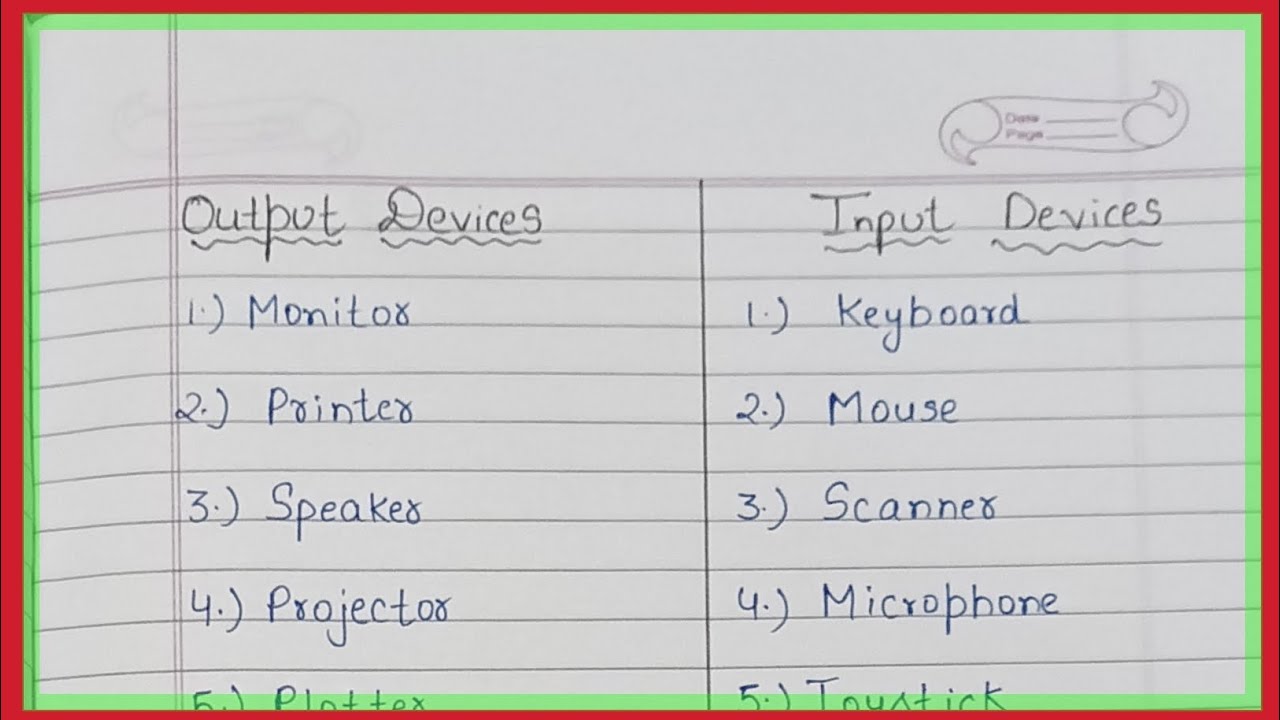 Date
Page
Output Devices
Input Devices
1.) Monitor
1.) Keyboard
2.) Printer
2.) Mouse
3.) Speaker
3.) Scanner
4.) Projector
4.) Microphone
5.) Plotter
5.) Joystick